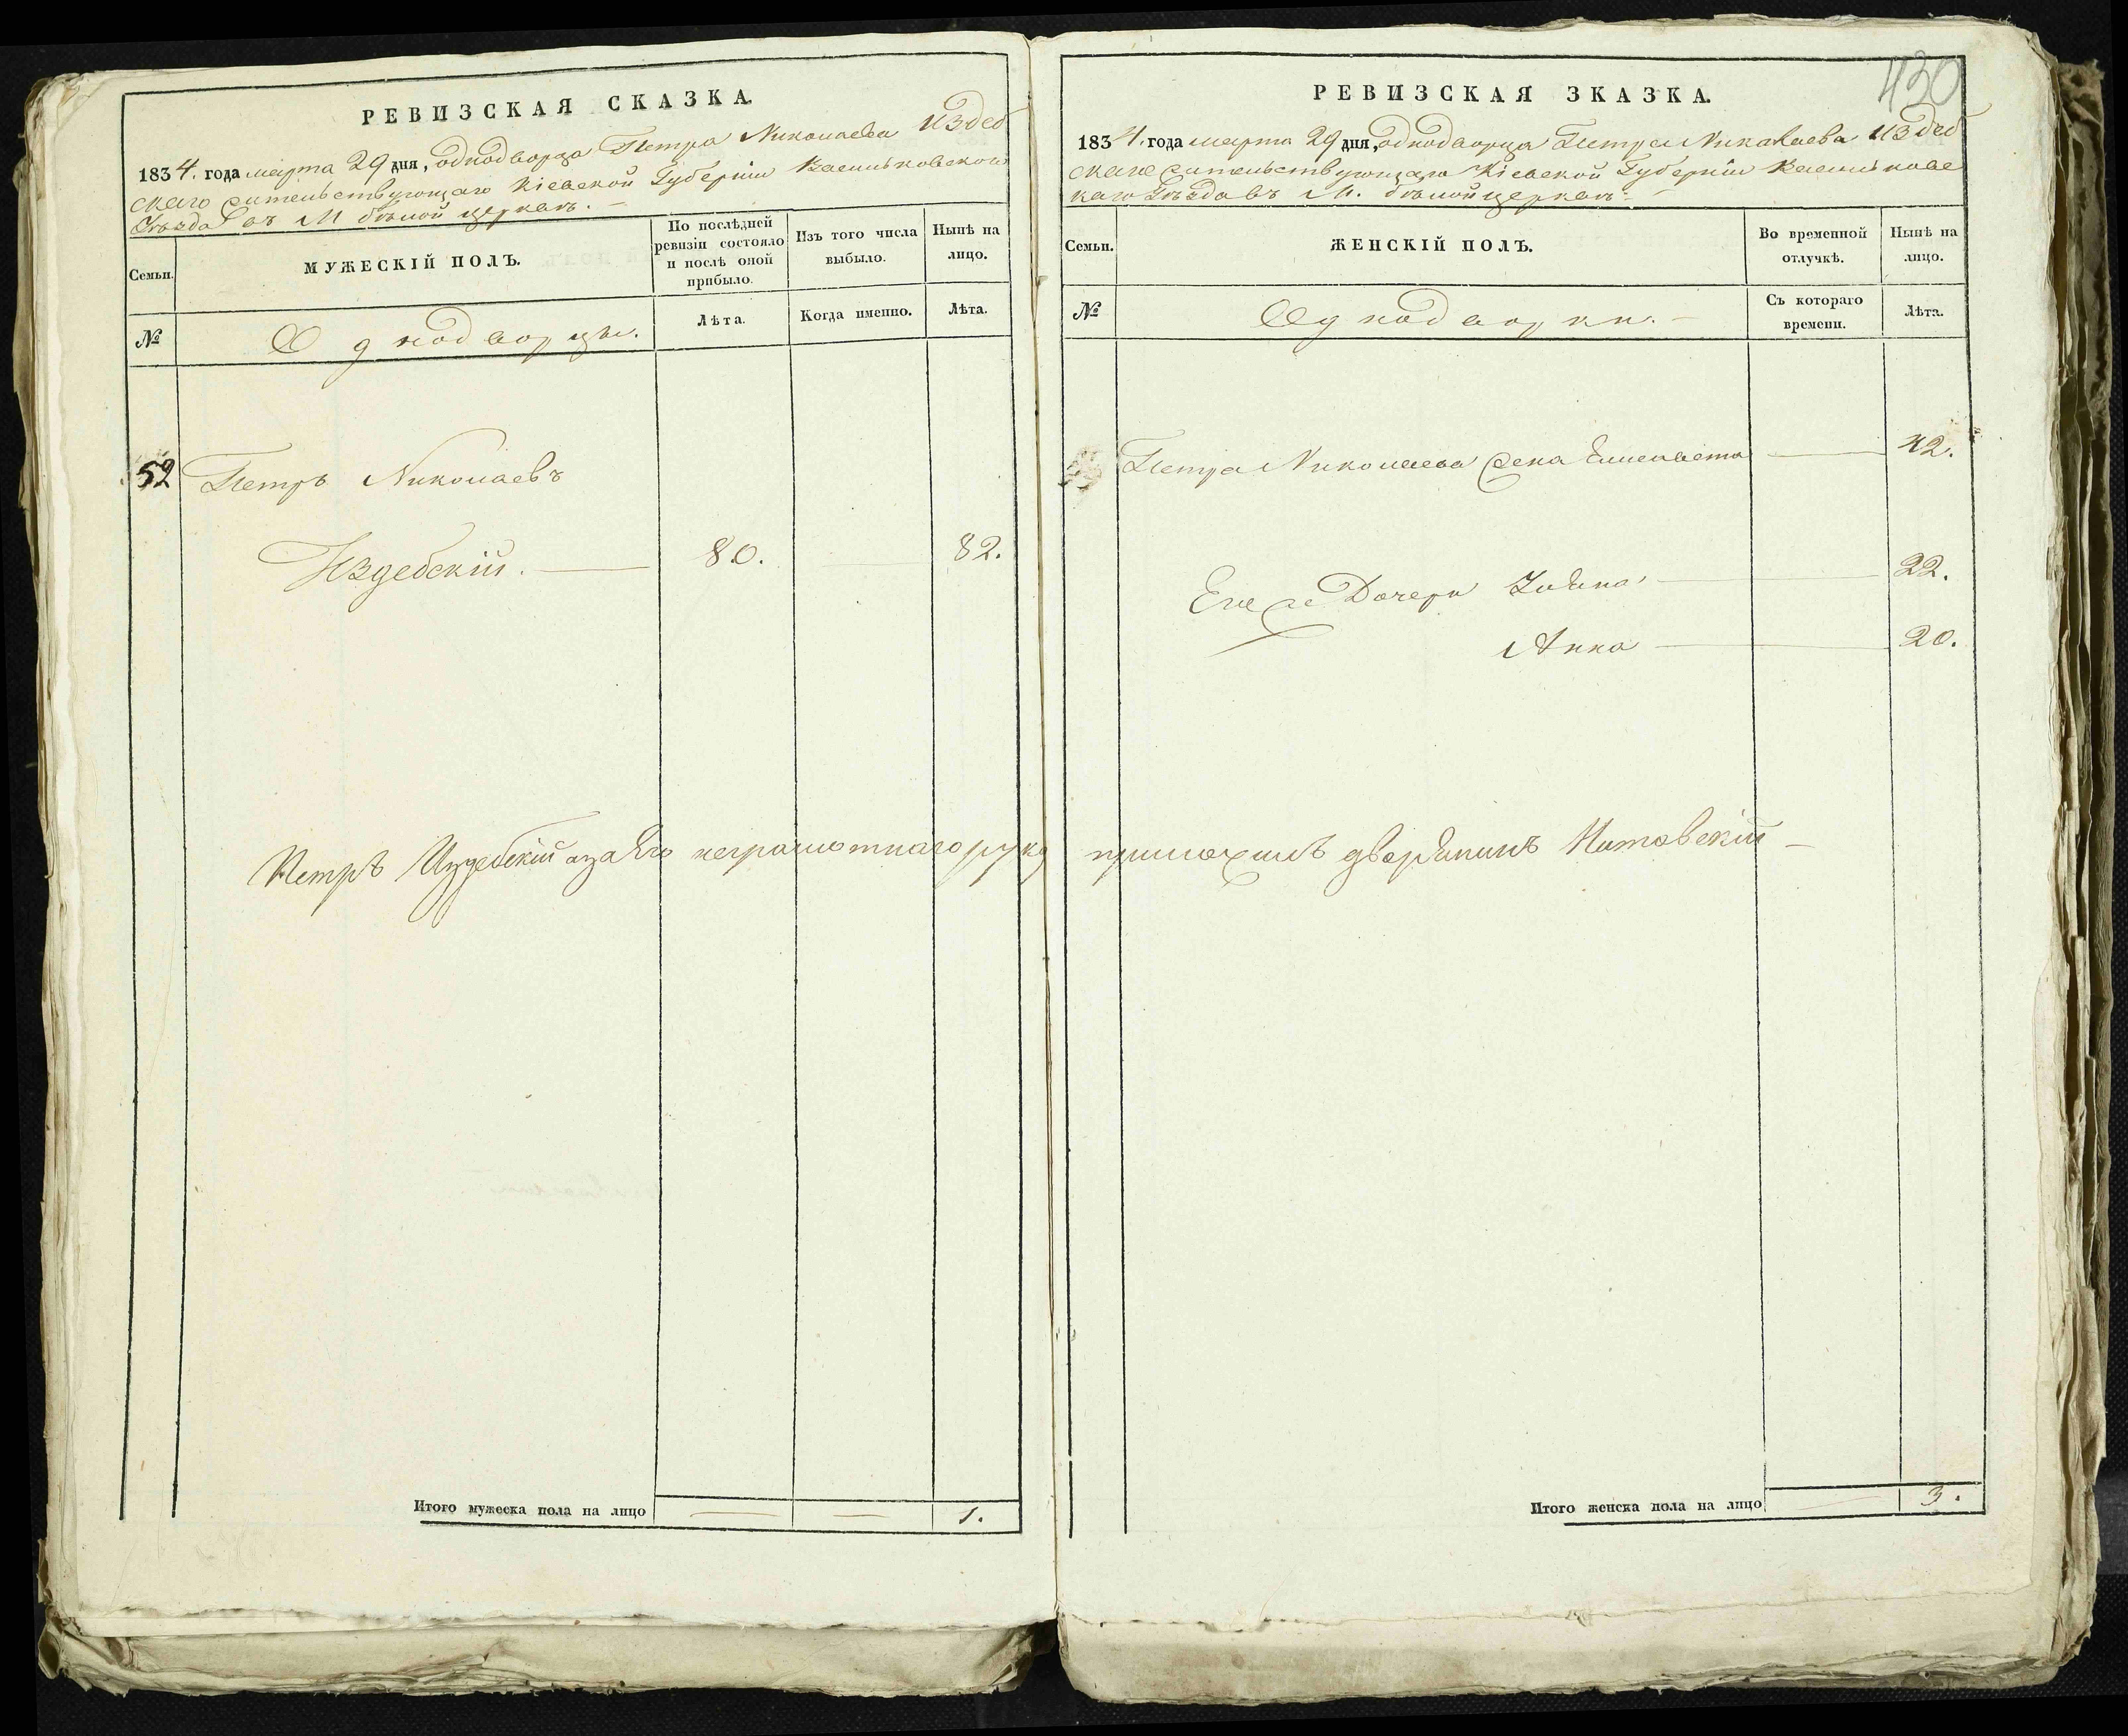 РЕВИЗСКАЯ СКАЗКА.
1834. года марта 29 дня, однодворца Петра Николаева Издеб
скаго жительствующаго Кіевской Губерніи Васильковскаго
Уѣзда въ М бѣлой церквѣ. —
Семьи.
МУЖЕСКІЙ ПОЛЪ.
По послѣдней
ревизіи состояло
и послѣ оной
прибыло.
Изъ того числа
выбыло.
Нынѣ на
лицо.
№
Однодворцы.
Лѣта.
Когда именно.
Лѣта.
52
Петръ Николаевъ
Издебскій. — 80. 82.
Петръ Издебскій а за Его неграмотнаго руку
Итого мужеска пола на лицо — — 1.
430
РЕВИЗСКАЯ ЗКАЗКА.
1834. года марта 29 дня, однодворца Петра Николаева Издеб
скаго жительствующаго Кіевской Губерніи Васильковс
каго Уѣзда въ М. бѣлой церквѣ —
Семьи.
ЖЕНСКІЙ ПОЛЪ.
Во временной
отлучкѣ.
Нынѣ на
лицо.
№
Однодворки. —
Съ котораго
времени.
Лѣта.
Петра Николаева жена Елисавета — 42.
Его же Дочери — 22.
Анна — 20.
приложилъ дворянинъ —
Итого женска пола на лицо — 3.